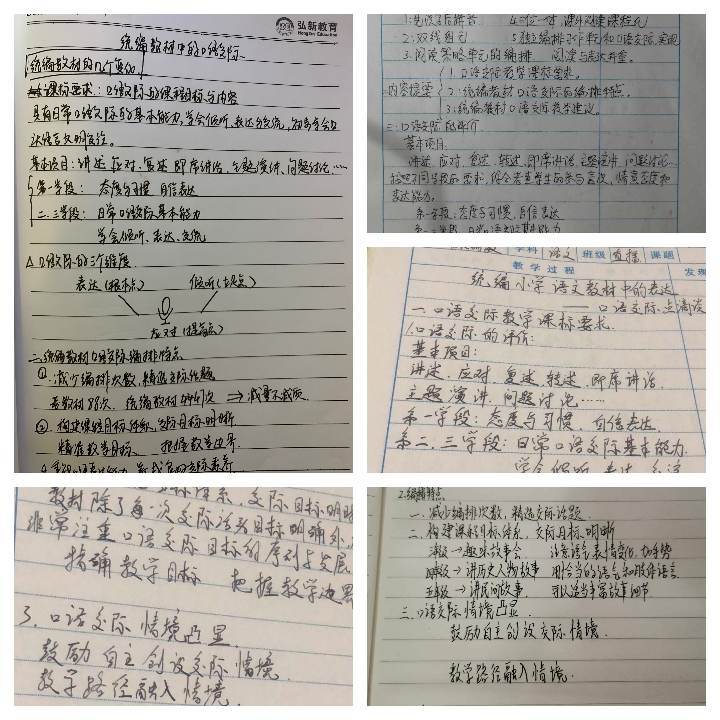 弘新教育
统编教材中的口语交际
统编教材的几个变化
课标要求：口语交际的课程目标与内容
具有日常口语交际的基本能力，学会倾听、表达与交流，初步学会
达语言文明
基本项目：讲述、应对、复述、即席讲话、主题演讲、问题讨论……
第一学段：态度与习惯 自信表达
二、三学段：日常口语交际基本能力
学会倾听、表达、交流
口语交际的三个维度
表达(根本点) 倾听(起点)
应对(提高点)
二、统编教材口语交际编排特点
①减少编排次数，精选交际话题
统编教材 次 ⇒ 减量不减质
② 构建课程目标体系，交际目标明晰
精准教学目标 把握教学边界
4.三位一体，课外阅读课程化
2.双线组元 5.独立编排习作单元和口语交际
3.阅读策略单元的编排 阅读与表达并重。
1.口语交际教学课标要求。
内容提要 2.统编教材口语交际的编排特点。
3.统编教材口语交际教学建议。
三、口语交际的评价
基本项目
讲述、应对、复述、转述、即席讲话、主题演讲、问题讨论……
按照不同学段的要求，综合考查学生的参与意识、情意态度和
表达能力。
第一学段：态度与习惯，自信表达
学科 语文 班级 直播 课题
教学过程 发现
统编小学语文教材中的表达
——口语交际点滴谈
一、口语交际教学课标要求
1.口语交际的评价：
基本项目：
讲述、应对、复述、转述、即席讲话、
主题演讲、问题讨论……
第一学段：态度与习惯，自信表达。
第二、三学段：日常口语交际基本能力.
学会倾听、表达、交流
体系，交际目标明晰
教材除了每一次交际活动目标明确外，
非常注重口语交际目标的序列与发展
指确教学目标 把握教学边界
3.口语交际情境凸显.
鼓励自主创设交际情境.
教学路径融入情境.
2.编排特点
一、减少编排次数，精选交际话题.
二、构建课程目标体系，交际目标明晰
→趣味故事会 注意语气、表情变化，加手势
→讲历史人物故事 用恰当的语气和肢体语言
五年级→讲民间故事. 可以适当丰富故事细节
三、口语交际情境凸显.
鼓励自主创设交际情境.
教学路径融入情境.